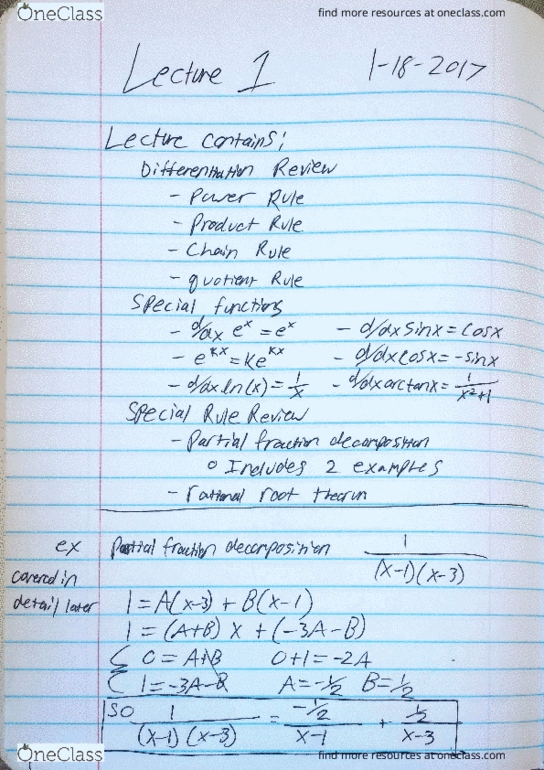 OneClass
find more resources at oneclass.com
Lecture 1 1-18-2017
Lecture contains;
Differentiation Review
- Power Rule
- Product Rule
- Chain Rule
- quotient Rule
Special functions
- d/dx e^x = e^x - d/dx sinx = cosx
- e^kx = ke^kx - d/dx cosx = -sinx
- d/dx ln(x) = 1/x - d/dx arctanx = 1/(x²+1)
Special Rule Review
- Partial fraction decomposition
o Includes 2 examples
- rational root theorum
ex Partial fraction decomposition 1/((x-1)(x-3))
covered in
detail later
1 = A(x-3) + B(x-1)
1 = (A+B) x + (-3A-B)
{ 0 = A+B 0+1 = -2A
{ 1 = -3A-B A = -1/2 B = 1/2
SO 1/((x-1)(x-3)) = (-1/2)/(x-1) + (1/2)/(x-3)
OneClass
find more resources at oneclass.com